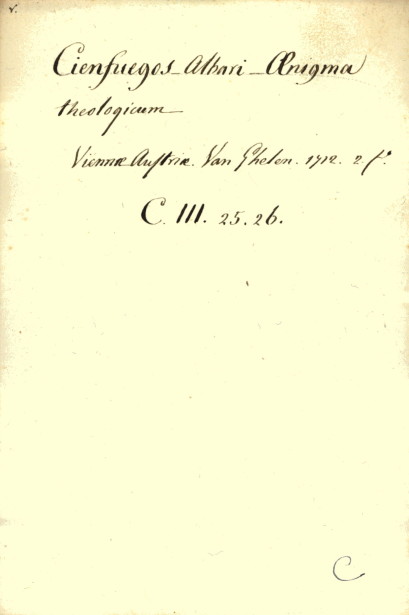 v.
Cienfuegos - Albari - Ænigma
theologicum
Viennæ Austriæ. Van Ghelen. 1712. 2 f.
C. III. 25. 26.
C